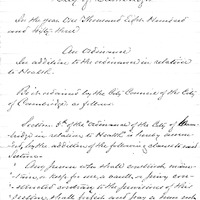 City of Cambridge.
In the year One Thousand Eight Hundred
and Fifty three
An Ordinance
In addition to the ordinance in relation
to Health.
Be it ordained by the City Council of the City
of Cambridge as follows.
Section 3d of the ordinance of the City of
in relation to Health, is hereby amen-
ded by the addition of the following clause to said
Section.
Any person who shall construct main-
tain, or keep for use a vault, or privy con-
structed contrary to the provisions of this
Section shall forfeit and pay a sum not